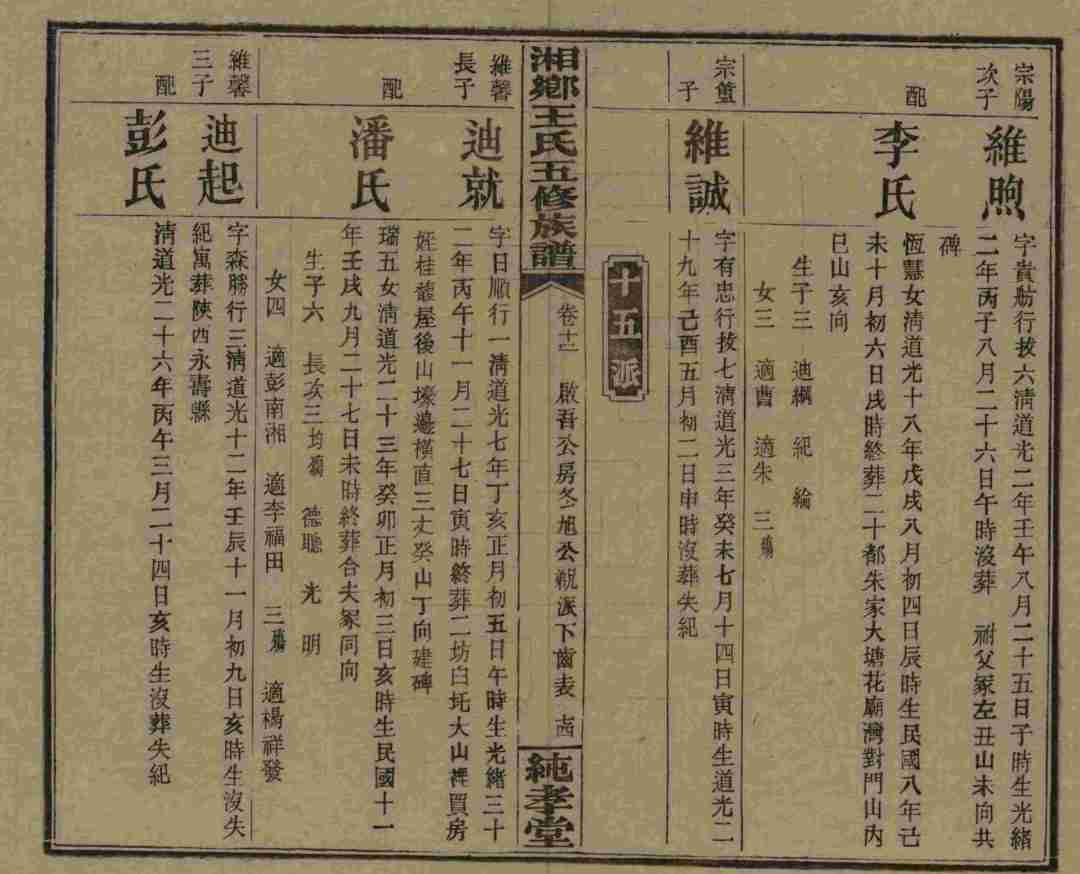 宗陽
次子
維煦
字貴舫行拔六清道光二年壬午八月二十五日子時生光緒
二年丙子八月二十六日午時沒葬 祔父冢左丑山未向共
碑
配
李氏
恆慧女清道光十八年戊戌八月初四日辰時生民國八年己
未十月初六日戌時終葬二十都朱家大塘花廟灣對門山丙
巳山亥向
生子三 迪綱 紀 綸
女三 適曹 適朱 三殤
宗簠
子
維誠
字有忠行拔七清道光三年癸未七月十四日寅時生道光二
十九年己酉五月初二日申時沒葬失紀
十五派
湘鄉王氏五修族譜
卷十二 啟吾公房冬旭公親派下齒表 十四
純孝堂
維馨
長子
迪就
字日順行一清道光七年丁亥正月初五日午時生光緒三十
二年丙午十一月二十七日寅時終葬二坊白圫大山裡買房
姪桂馥屋後山壕邊橫直三丈癸山丁向建碑
配
潘氏
瑞五女清道光二十三年癸卯正月初三日亥時生民國十一
年壬戌九月二十七日未時終葬合夫冢同向
生子六 長次三均殤 德聰 光 明
女四 適彭南湘 適李福田 三殤 適楊祥發
維馨
三子
迪起
字森勝行三清道光十二年壬辰十一月初九日亥時生沒失
紀寓葬陝西永壽縣
配
彭氏
清道光二十六年丙午三月二十四日亥時生沒葬失紀